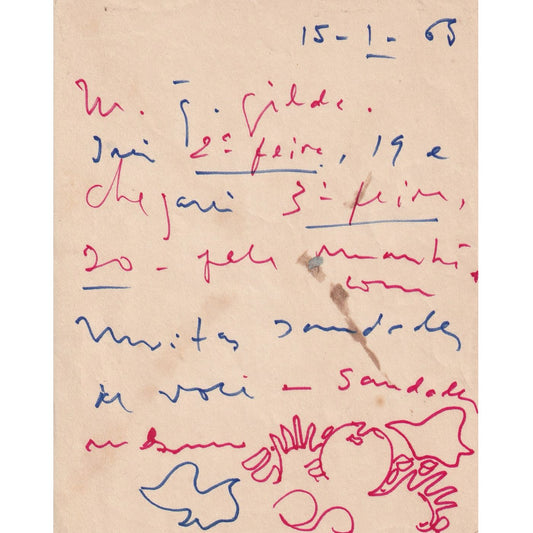 15-1-65
M. G. Gilda.
Irei 2ª feira, 19 e
chegarei 3ª feira,
20 - pela manhã.
com
Muitas saudades
de você - Saudades
mesmo